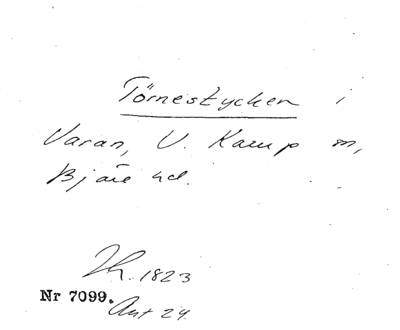 Törnestycken i
Varan, V. Karup sn,
Bjäre hd.
Th. 1823
Nr 7099.
Ant 24.